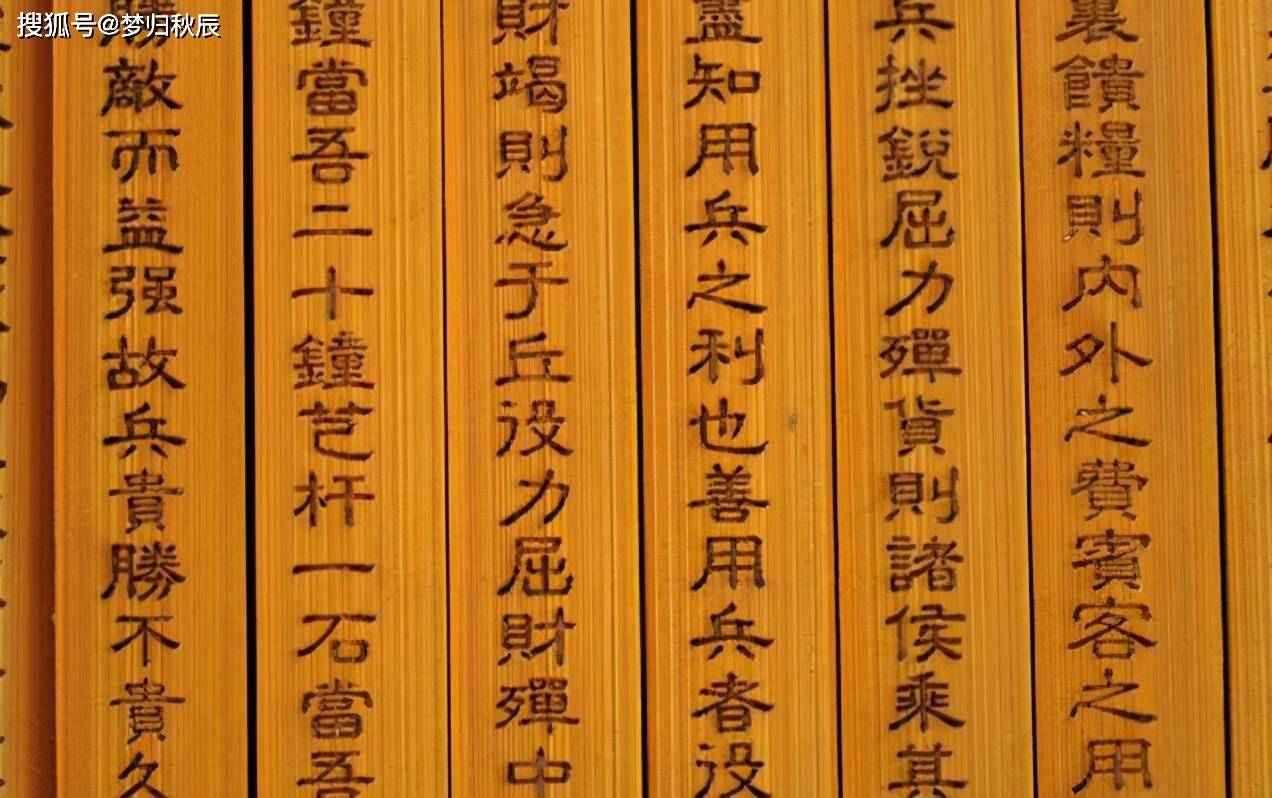 搜狐号@梦归秋辰
裏饋糧則内外之費賓客之用
兵挫銳屈力殫貨則諸侯乘其
盡知用兵之利也善用兵者役
財竭則急于丘役力屈財殫中
鐘當吾二十鐘芑杆一石當吾
勝敵而益强故兵貴勝不貴久